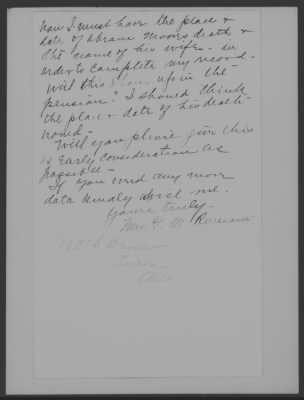 Now I must have the place &
date of Abram Moons death &
the name of his wife - in
order to complete my record -
Will this show up in the
pension? I should think
the place & date of his death
Will you please give this
as early consideration as
possible -
If you need any more
data kindly advise me.
Yours truly -
Mrs. G. M.
1631 S. Denver
Tulsa
Okla